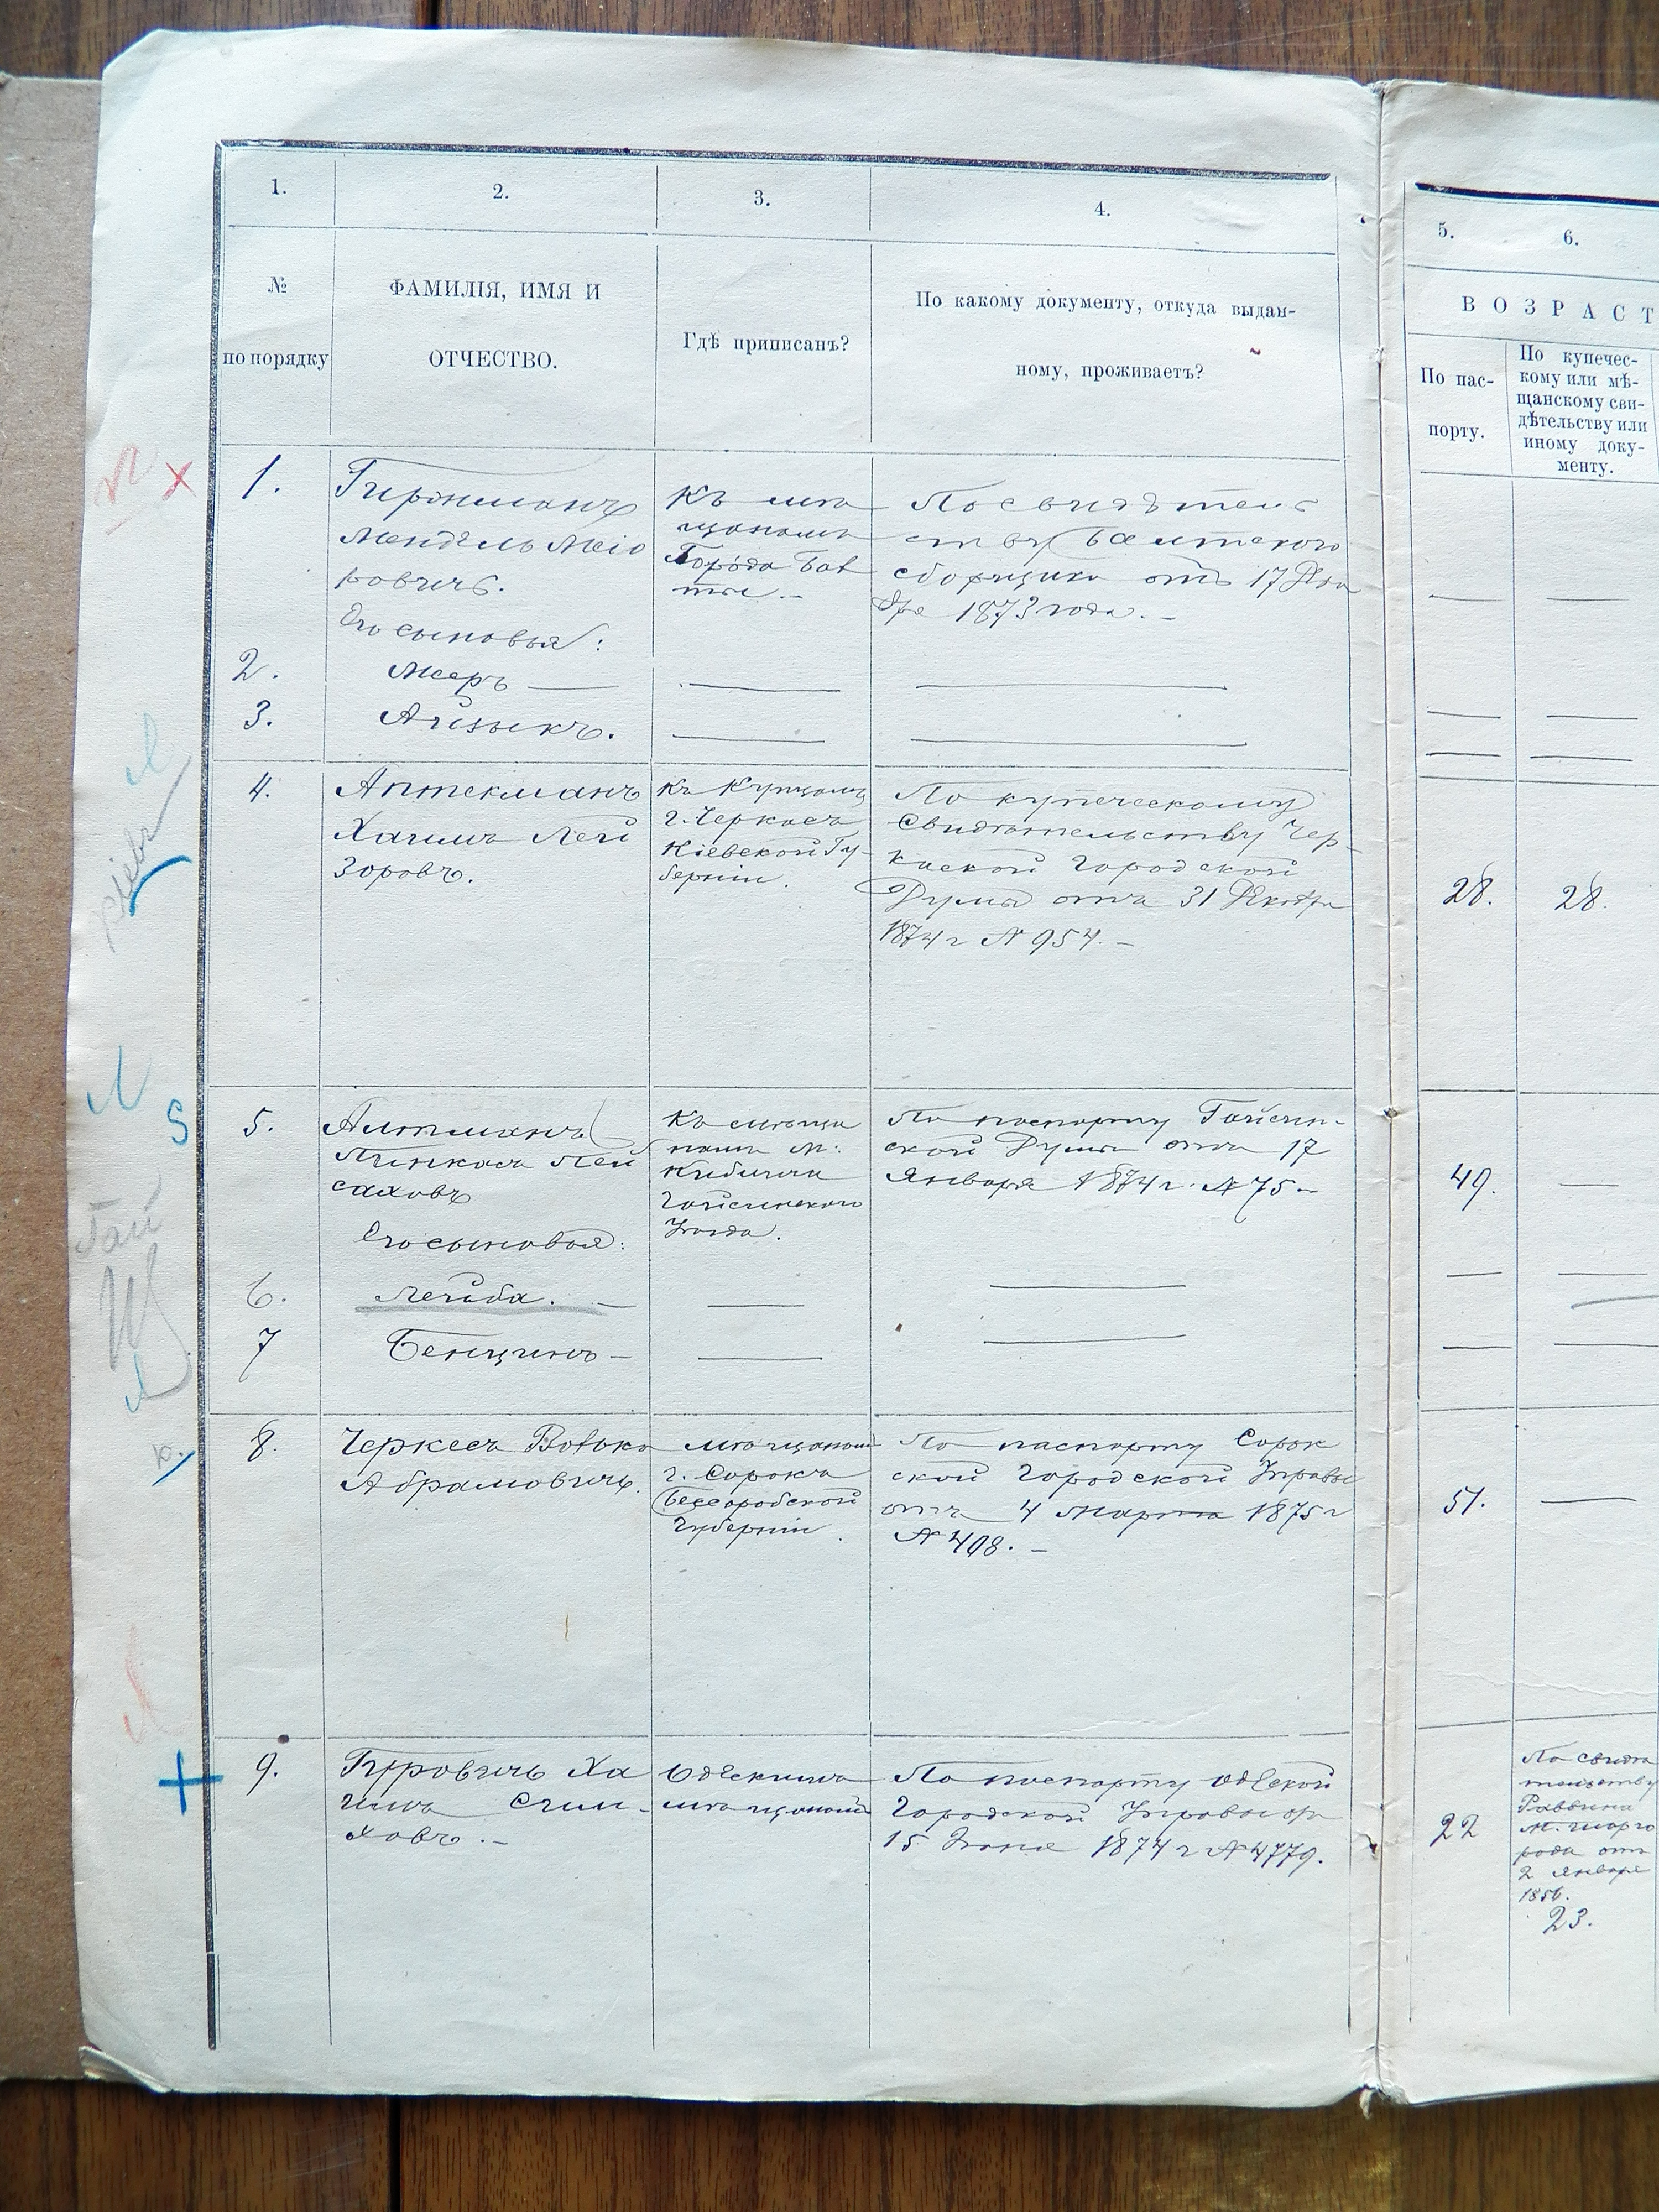 1.
2.
3.
4.
5.
6.
№
по порядку
ФАМИЛІЯ, ИМЯ И
ОТЧЕСТВО.
Гдѣ приписанъ?
По какому документу, откуда выдан-
ному, проживаетъ?
ВОЗРАСТ
По пас-
порту.
По купечес-
кому или мѣ-
щанскому сви-
дѣтельству или
иному доку-
менту.
1.
Менделъ Меіо
ровичъ.
Его сыновья:
Къ мѣ
щанамъ
Города Бал
ты. -
По свидѣтель
ству Балтского
сборщика отъ 17 Дека
бря 1873 года. -
2.
Мееръ
3.
Айзыкъ.
4.
Аптекманъ
Хаимъ Лей
зоровъ.
Къ Купцамъ
г. Черкасъ
Кіевской Гу-
берніи.
По купеческому
Свидѣтельству Чер-
каской Городской
Думы отъ 31 Декабря
1874 г № 954. -
28.
28.
5.
Алтманъ
Пинкасъ Пей
саховъ
Его сыновья:
Къ мѣща
намъ м:
Кублича
Гайсинского
Уѣзда.
По паспорту Гайсин-
ской Думы отъ 17
Января 1874 г. № 75 -
49.
6.
Лейба. -
7
Бенціинъ -
8.
Черкесъ Волько
Абрамовичъ.
мѣщанинъ
г. Сорокъ
Бесарабской
Губерніи.
По паспорту Сорок
ской Городской Управы
отъ 4 Марта 1875 г
№ 408. -
51.
9.
Гуровичъ Ха
имъ Сим-
ховъ. -
Одескимъ
мѣщанинъ
По паспорту Одеской
Городской Управы от
15 Іюня 1874 г № 4779.
22
По свидѣ
тельству
Раввина
рода отъ
2 Января
1856.
23.
Кіевъ
Гай